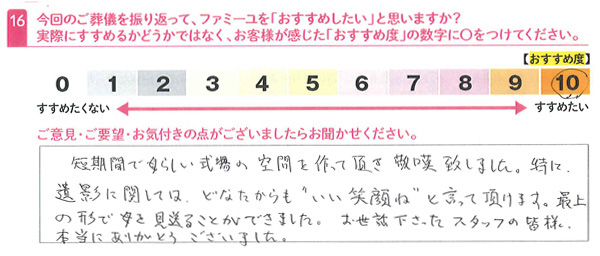 16 今回のご葬儀を振り返って、ファミーユを「おすすめしたい」と思いますか?
実際にすすめるかどうかではなく、お客様が感じた「おすすめ度」の数字に〇をつけてください。
【おすすめ度】
0 1 2 3 4 5 6 7 8 9 10
すすめたくない すすめたい
ご意見・ご要望・お気付きの点がございましたらお聞かせください。
短期間で母らしい式場の空間を作って頂き敬嘆致しました。特に、
遺影に関しては、どなたからも"いい笑顔ね"と言って頂けます。最上
の形で母を見送ることができました。お世話下さったスタッフの皆様、
本当にありがとうございました。